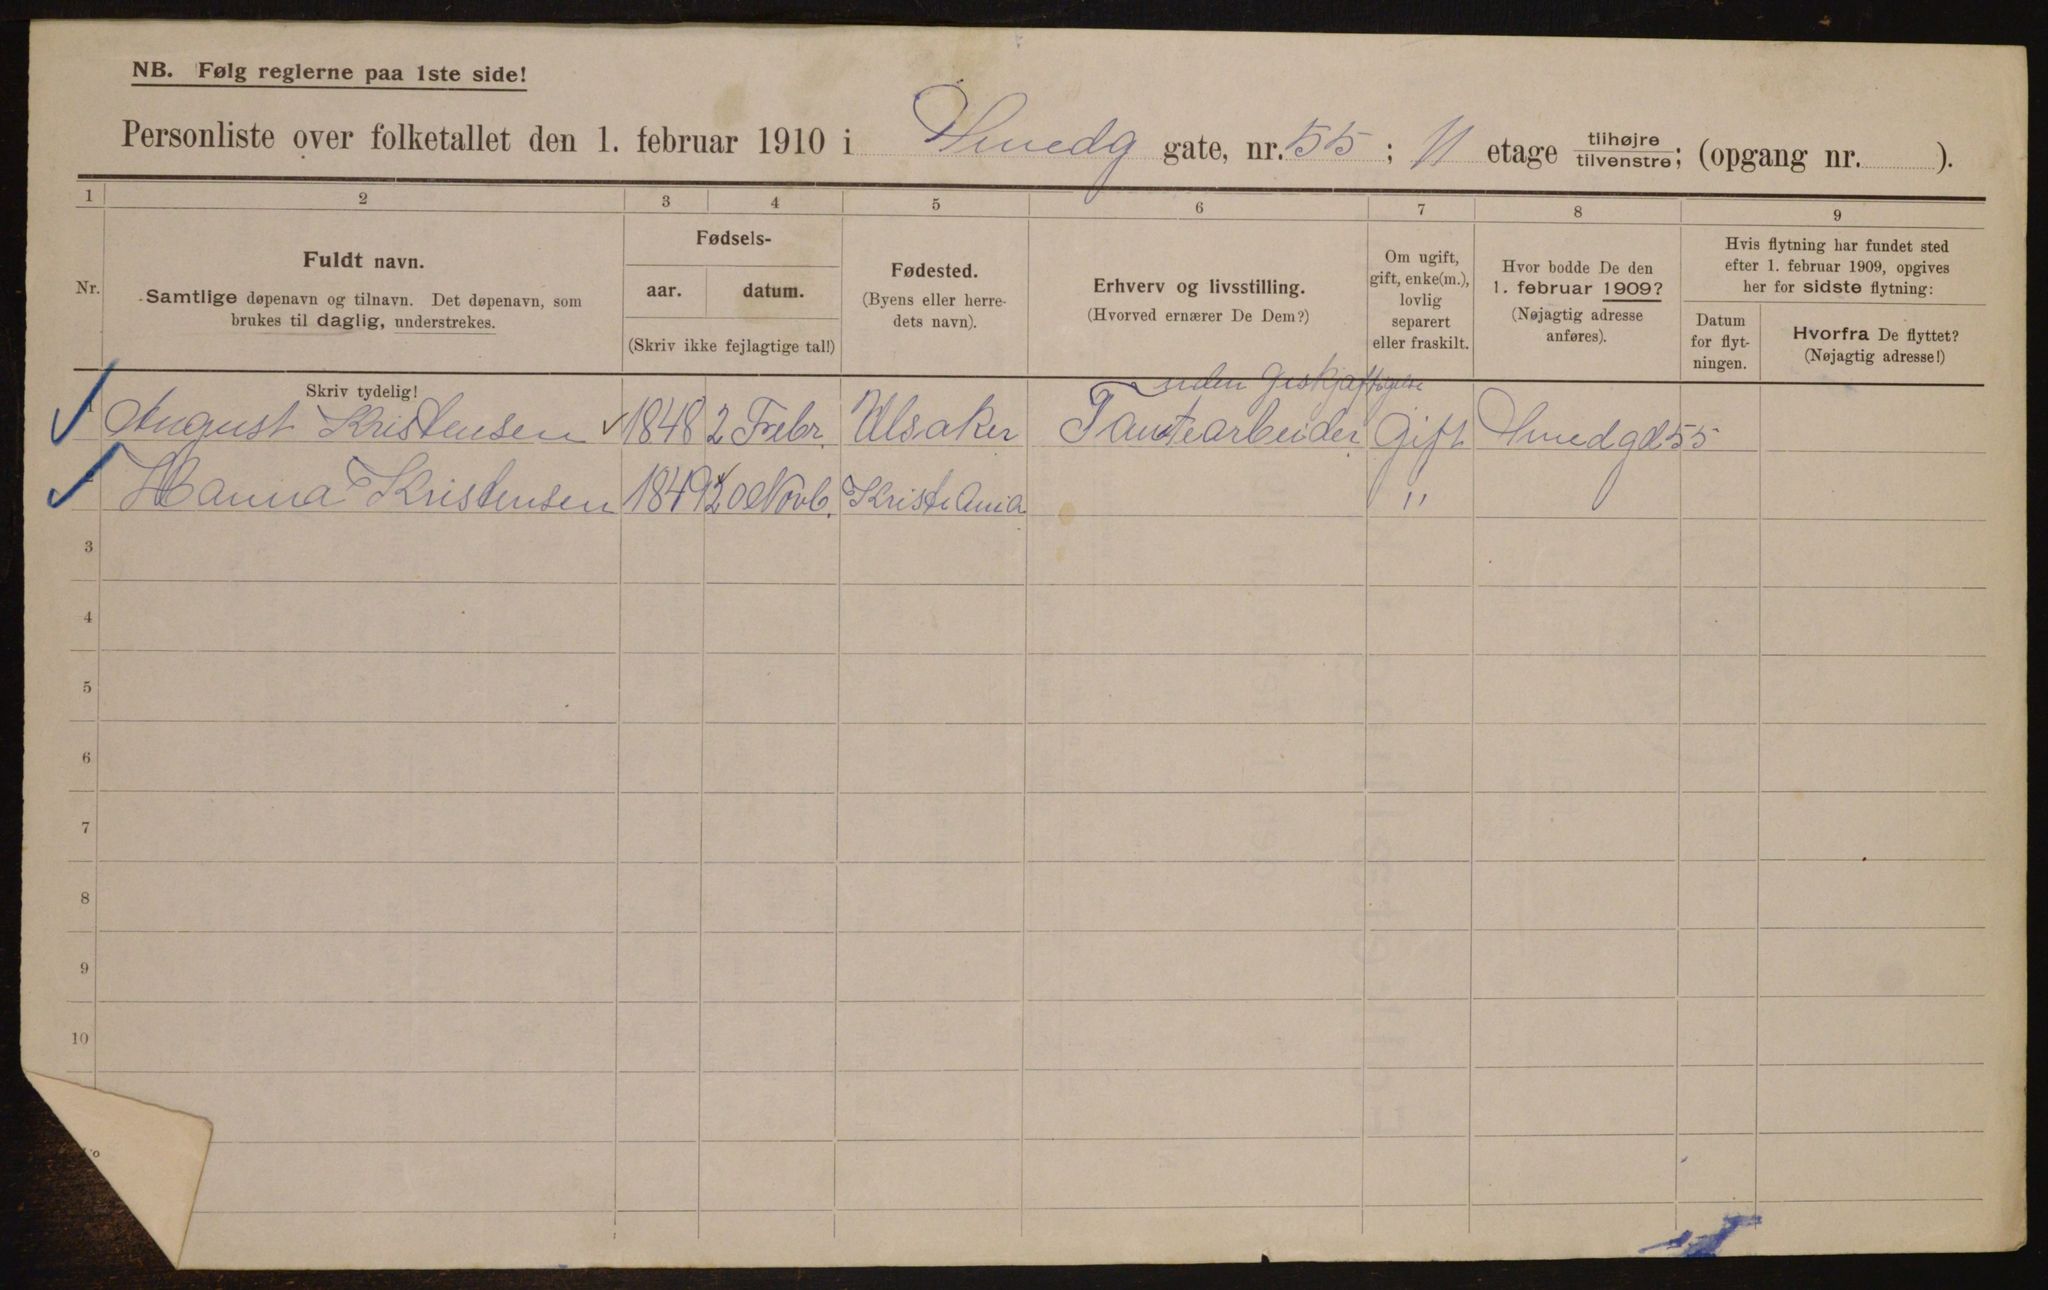 NB. Følg reglerne paa 1ste side!
Personliste over folketallet den 1. februar 1910 i Smedg gate, nr. 55 ; II etage tilhøjre tilvenstre; (opgang nr. ).
1 2 3 4 5 6 7 8 9
Nr.
Fuldt navn.
Samtlige døpenavn og tilnavn. Det døpenavn, som
brukes til daglig, understrekes.
Skriv tydelig!
Fødsels-
aar. datum.
(Skriv ikke fejlagtige tal!)
Fødested.
(Byens eller herre-
dets navn).
Erhverv og livsstilling.
(Hvorved ernærer De Dem?)
Om ugift,
gift, enke(m.),
lovlig
separert
eller fraskilt.
Hvor bodde De den
1. februar 1909?
(Nøjagtig adresse
anføres).
Hvis flytning har fundet sted
efter 1. februar 1909, opgives
her for sidste flytning:
Datum
for flyt-
ningen.
Hvorfra De flyttet?
(Nøjagtig adresse!)
uden Geskjæftigelse
1 August Kristensen 1848 2 Febr. Ulsaker Gift Smedgd 55
Hanna Kristensen 1849 20 Novb. Kristiania "
3
4
5
6
7
8
9
10